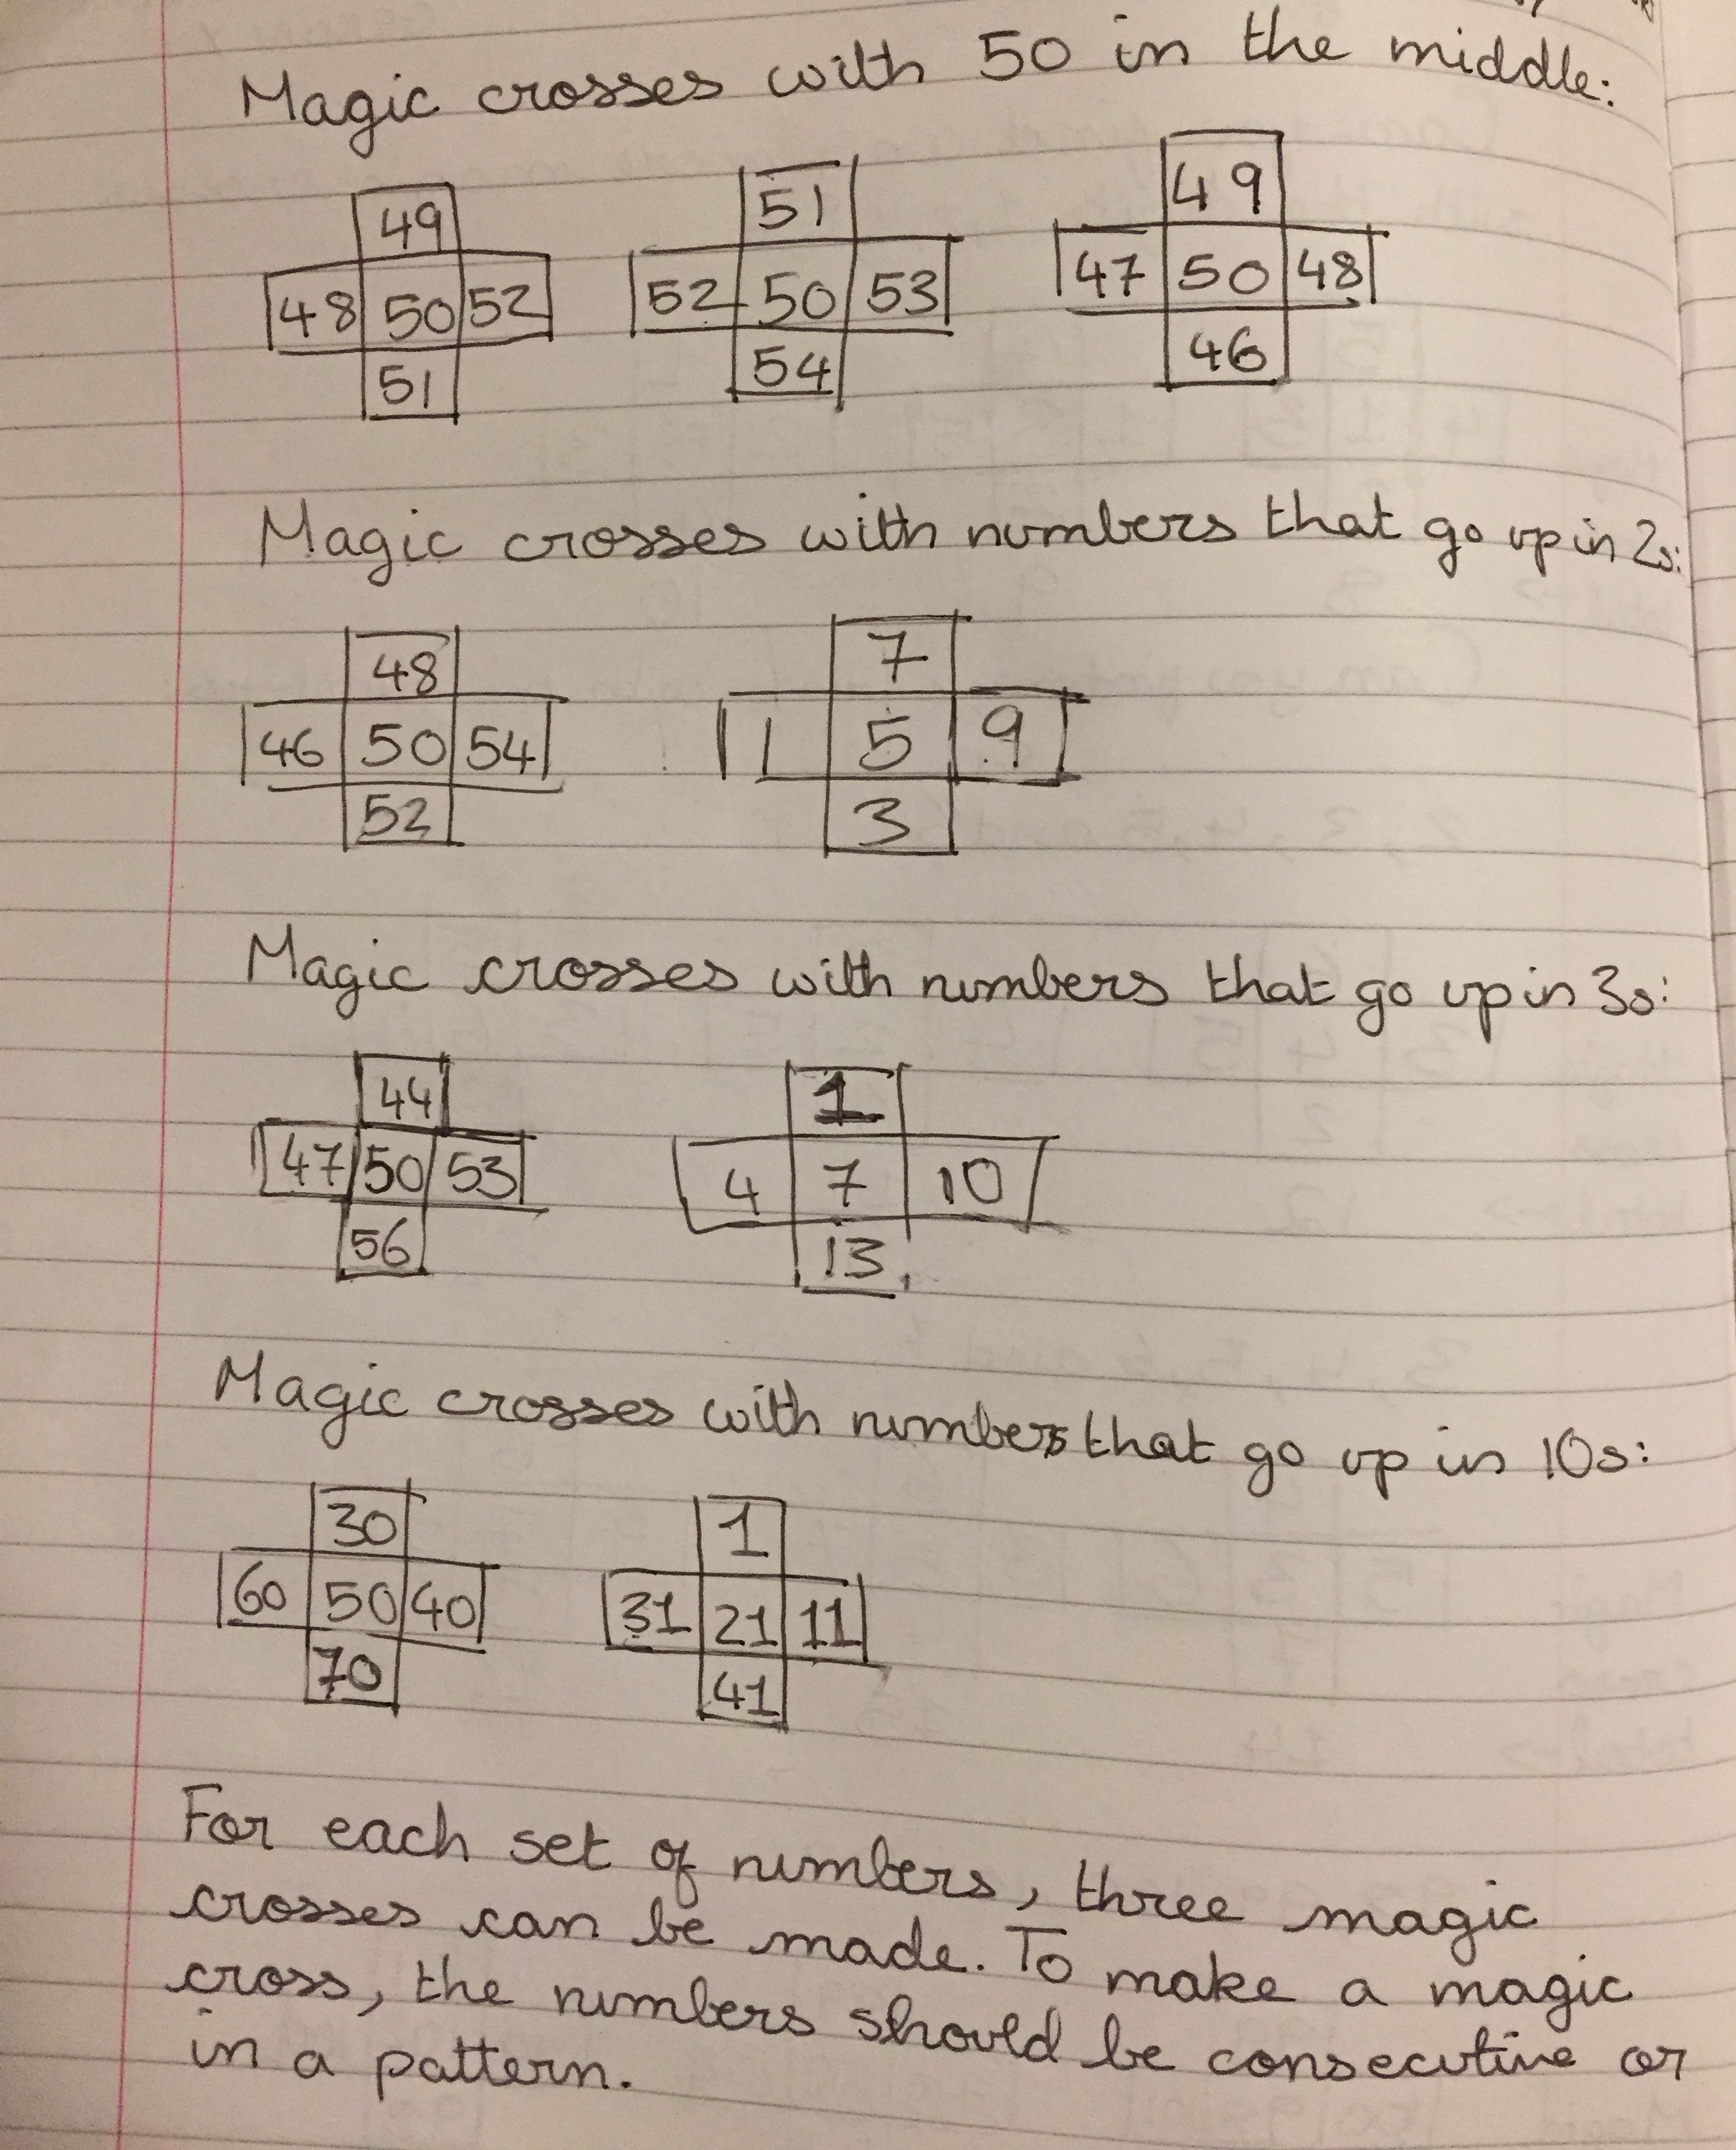 Magic crosses with 50 in the middle:
49 51 49
48 50 52 52 50 53 47 50 48
51 54 46
Magic crosses with numbers that go up in 2s:
48 7
46 50 54 1 5 9
52 3
Magic crosses with numbers that go up in 3s:
44 1
47 50 53 4 7 10
56 13
Magic crosses with numbers that go up in 10s:
30 1
60 50 40 31 21 11
70 41
For each set of numbers, three magic
crosses can be made. To make a magic
cross, the numbers should be consecutive or
in a pattern.